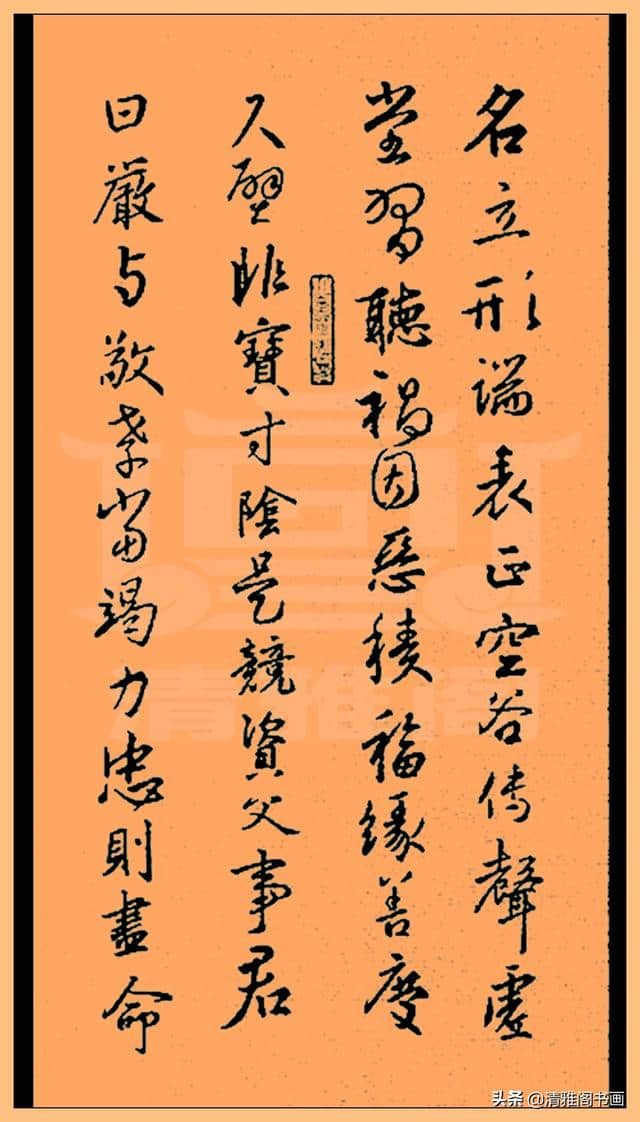 名立形端表正空谷傳聲虛
堂習聽禍因惡積福緣善慶
尺璧非寶寸陰是競資父事君
曰嚴与敬孝當竭力忠則盡命
清雅阁
头条 @清雅阁书画